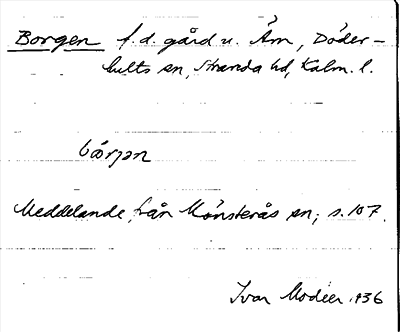 Borgen f.d. gård u. Åm, Döder-
hults sn, Stranda hd, Kalm. l.
bórjən
Meddelande från Mönsterås sn; s. 107.
Ivar Modéer 1936